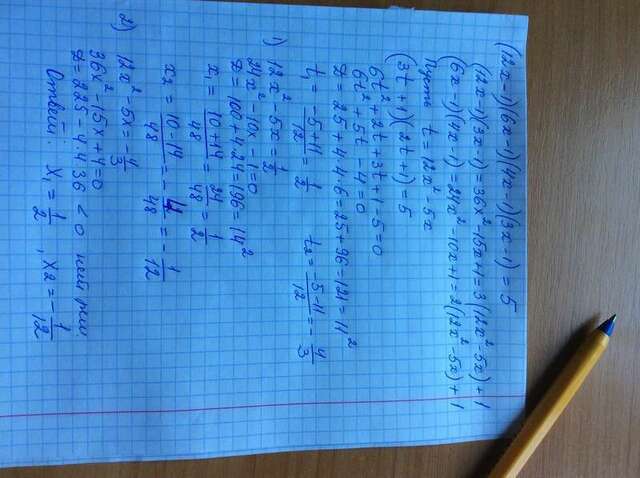 (12x-1)(6x-1)(4x-1)(3x-1) = 5
(12x-1)(3x-1) = 36x² - 15x + 1 = 3(12x² - 5x) + 1
(6x-1)(4x-1) = 24x² - 10x + 1 = 2(12x² - 5x) + 1
Пусть t = 12x² - 5x
(3t+1)(2t+1) = 5
6t² + 2t + 3t + 1 - 5 = 0
6t² + 5t - 4 = 0
D = 25 + 4·4·6 = 25 + 96 = 121 = 11²
t₁ = (-5+11)/12 = 1/2 t₂ = (-5-11)/12 = -4/3
1) 12x² - 5x = 1/2
24x² - 10x - 1 = 0
D = 100 + 4·24 = 196 = 14²
x₁ = (10+14)/48 = 24/48 = 1/2
x₂ = (10-14)/48 = -4/48 = -1/12
2) 12x² - 5x = -4/3
36x² - 15x + 4 = 0
D = 225 - 4·4·36 < 0 нет реш
Ответ: x₁ = 1/2, x₂ = -1/12